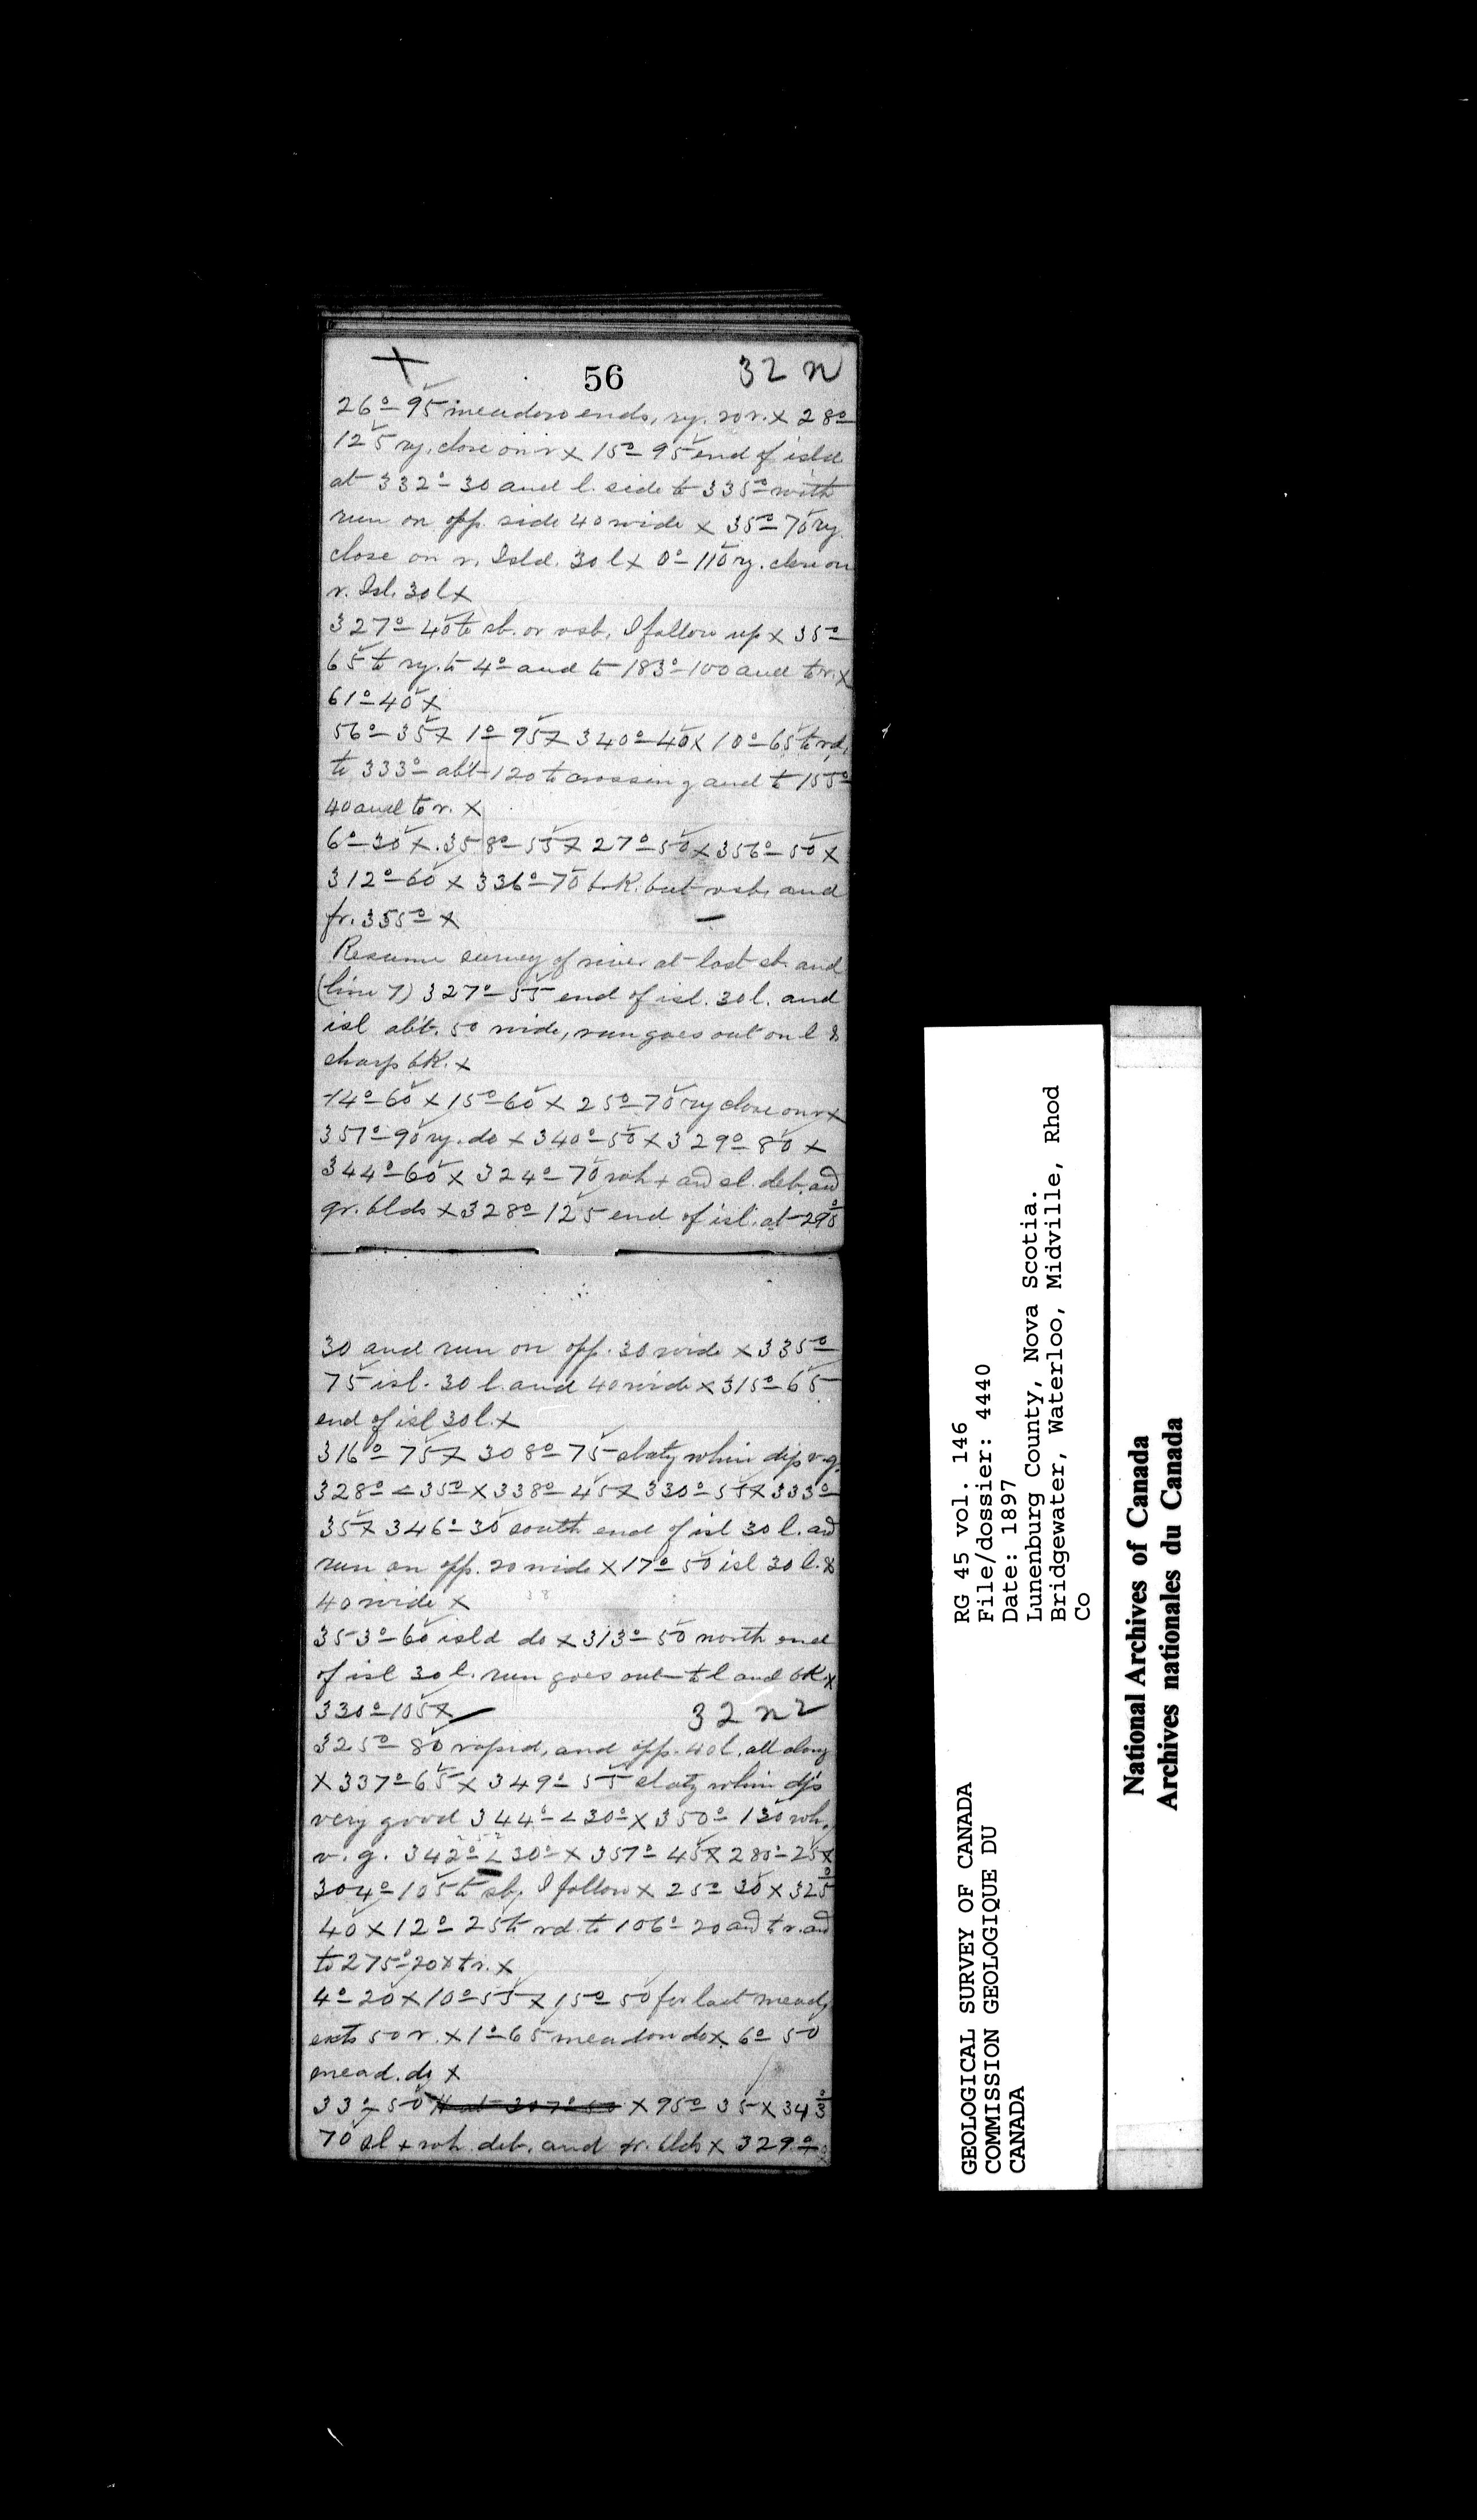 X 56 32 n
26° 95 meadow ends, ry. 20 r. x 28°
125 ry. close on r x 15° 95 end of isld
at 332° 30 and l. side to 335° with
run on opp. side 40 wide x 35° 75 ry.
close on r. Isld. 30 l x 0° 110 ry. close on
r. Isl. 30 l x
327° 40 to sb. or vsb. I follow up x 35°
65 to ry. to 4° and to 183° 100 and to r. x
61° 40 x
56° 35 x 1° 95 x 340° 40 x 10° 65 to rd.
to 333° abt 120 to crossing and to 155°
40 and to r. x
6° 30 x 358° 55 x 27° 50 x 356° 50 x
312° 60 x 336° 70 bk. but vsb. and
fr. 355° x
Resume survey of river at last sb. and
(line 7) 327° 55 end of isl. 30 l. and
isl abt. 50 wide, run goes out on l &
sharp bk. x
14° 60 x 15° 60 x 25° 70 ry close on r x
357° 90 ry. do x 340° 50 x 329° 80 x
344° 60 x 324° 70 wh + and sl. deb. and
gr. blds x 328° 125 end of isl. at 295°
30 and run on opp. 30 wide x 335°
75 isl. 30 l. and 40 wide x 315° 65
end of isl 30 l. x
316° 75 x 308° 75 slaty whin dip v.g.
328° < 35° x 338° 45 x 330° 55 x 333°
35 x 346° 30 south end of isl 30 l. and
run on opp. 20 wide x 17° 50 isl 30 l. &
40 wide x
353° 60 isld do x 313° 50 north end
of isl 30 l. run goes out to l and bk. x
330° 105 x 32 n 2
325° 80 rapid, and opp. 40 l. all along
x 337° 65 x 349° 55 slaty whin dips
very good 344° < 30° x 350° 130 wh.
v. g. 342° < 30° x 357° 45 x 280° 25 x
304° 105 to sb. I follow x 25° 30 x 325°
40 x 12° 25 to rd. to 106° 20 and to r. and
to 275° 20 x to r. x
4° 20 x 10° 55 x 15° 50 for last meadow
exts 50 r. x 1° 65 meadow do x 6° 50
mead. do x
33° 50 x 95° 35 x 343°
70 sl + wh deb. and gr. blds x 329°
RG 45 vol. 146
File/dossier: 4440
Date: 1897
Lunenburg County, Nova Scotia.
Bridgewater, Waterloo, Midville, Rhod
Co
GEOLOGICAL SURVEY OF CANADA
COMMISSION GEOLOGIQUE DU
CANADA
National Archives of Canada
Archives nationales du Canada